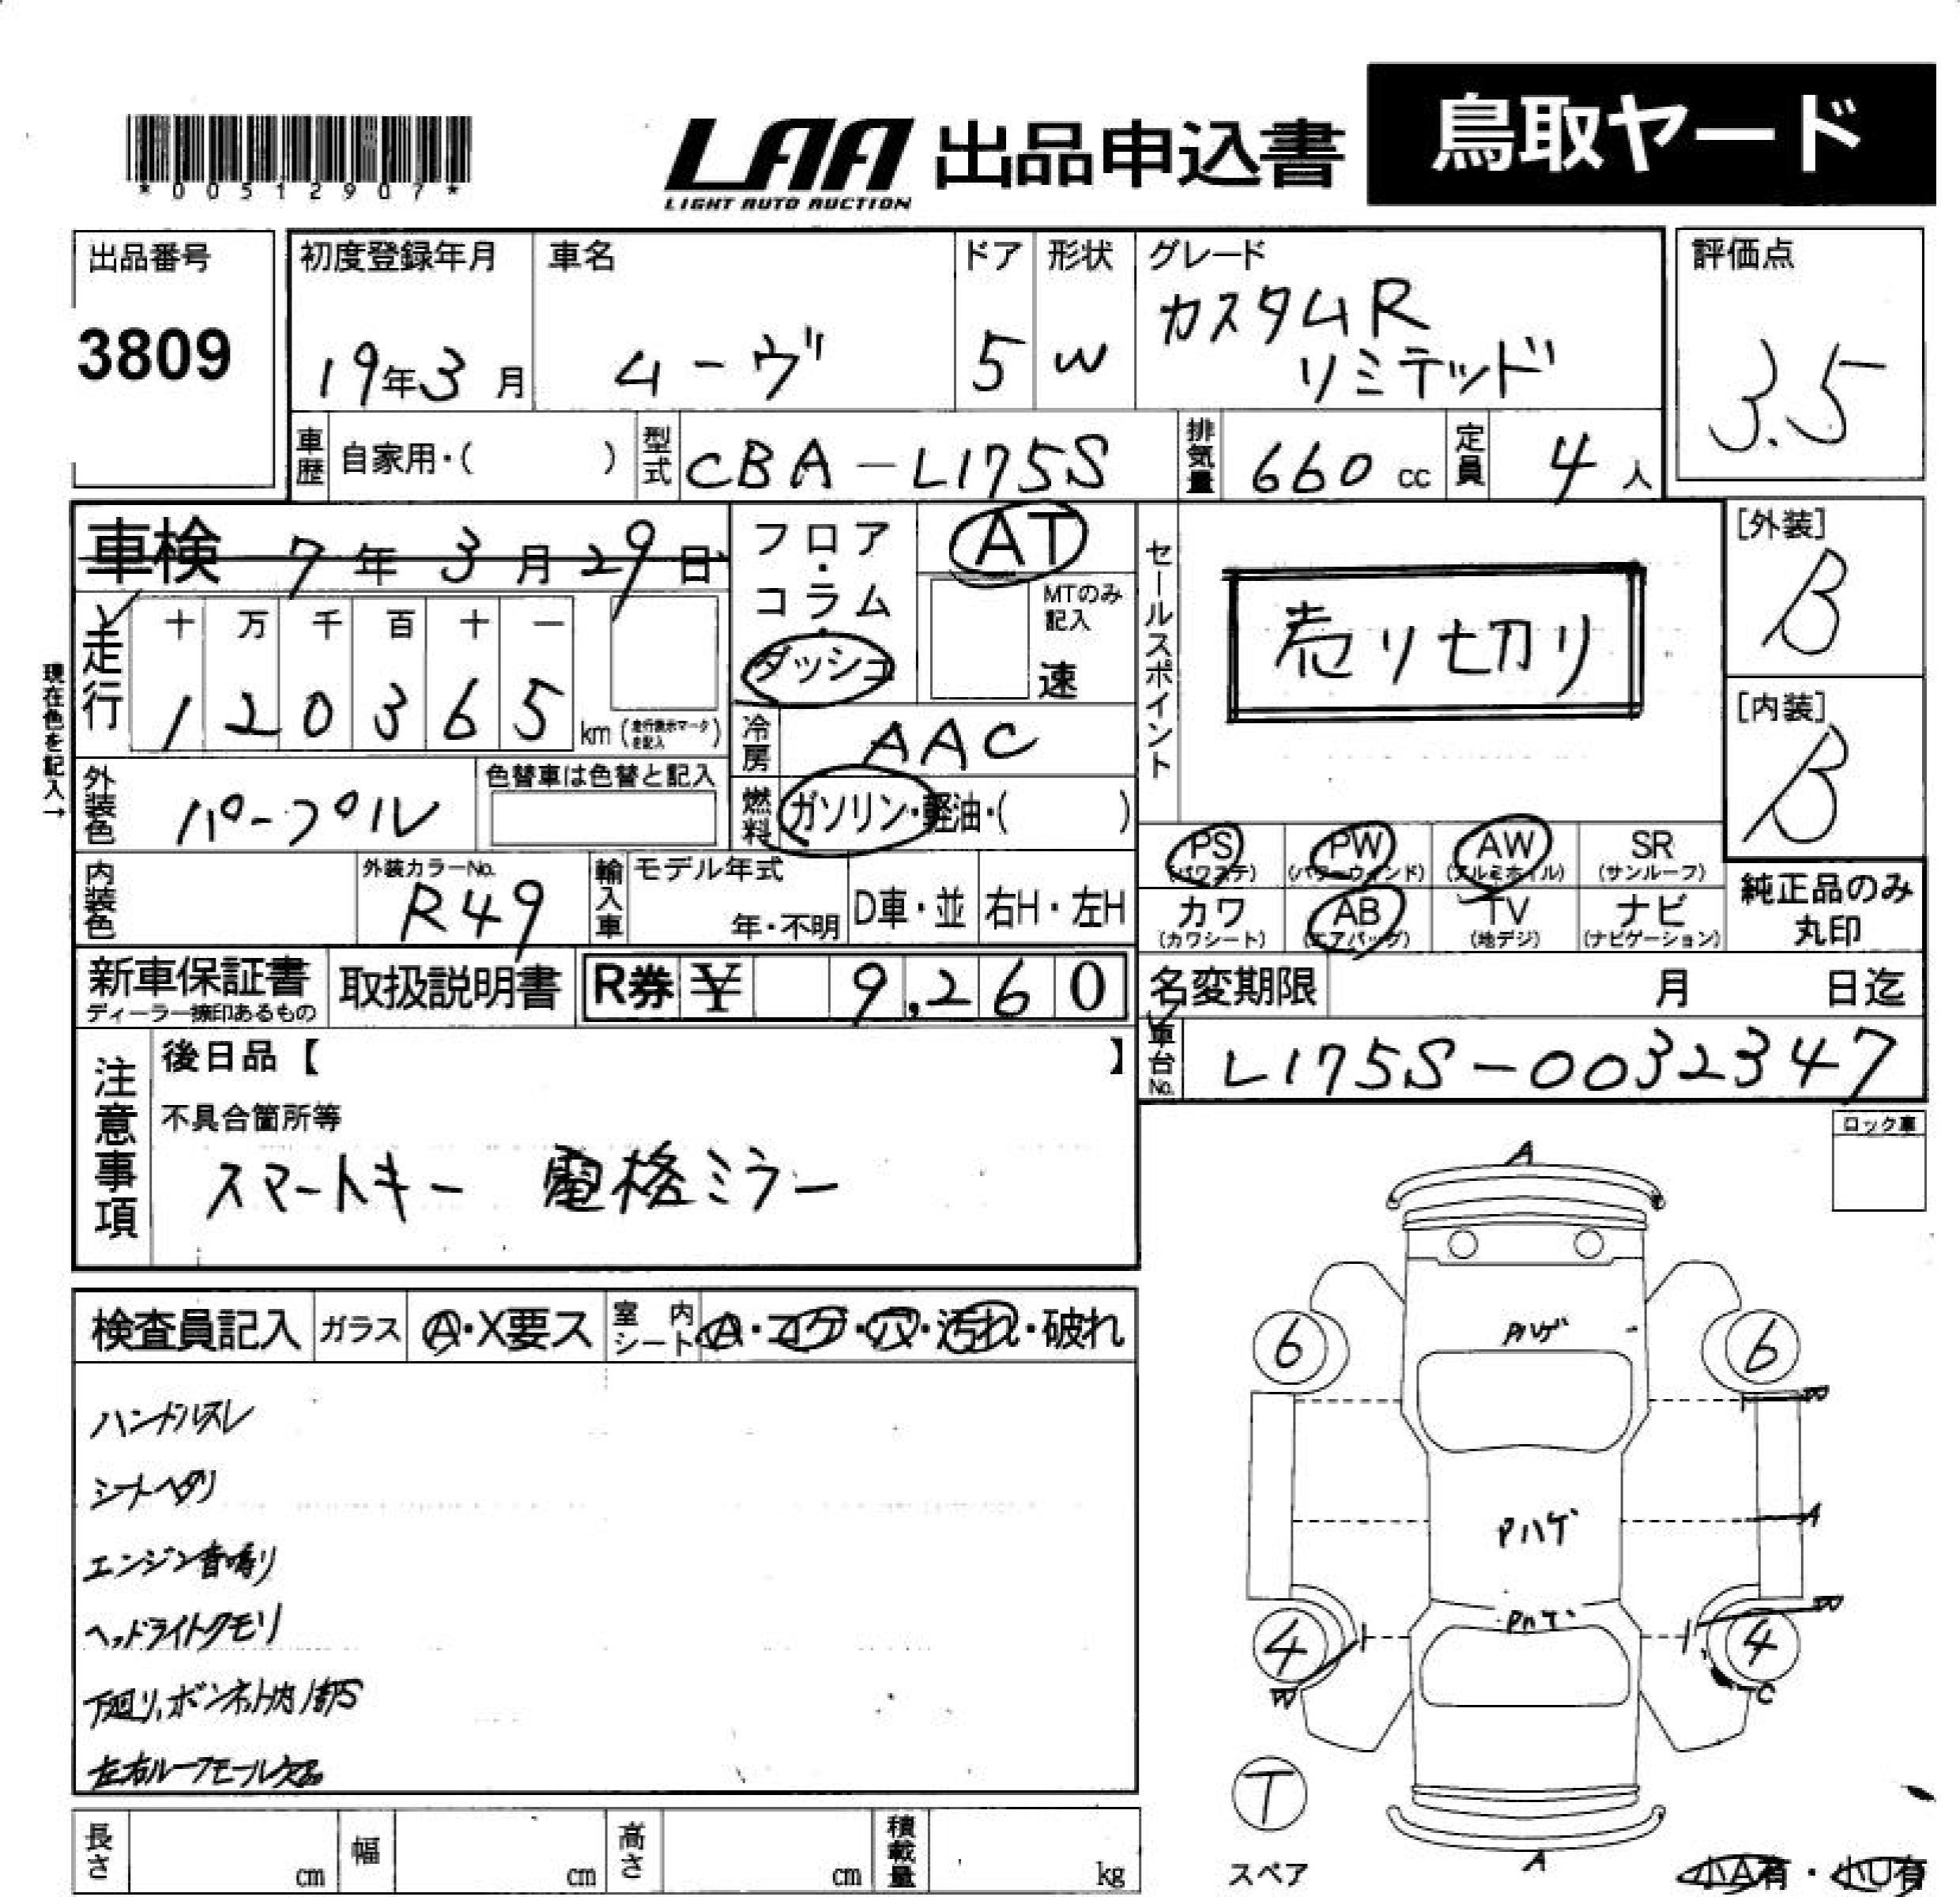 *00512907*
LAA 出品申込書 鳥取ヤード
LIGHT AUTO AUCTION
出品番号
3809
初度登録年月
19年3月
車名
ムーヴ
ドア
5
形状
W
グレード
カスタムR
リミテッド
評価点
3.5
車歴 自家用・( )
型式 CBA-L175S
排気量 660 cc
定員 4 人
車検 7年3月29日
フロア・コラム・ダッシュ
AT
MTのみ記入
速
セールスポイント
売り切り
[外装]
B
[内装]
B
現在色を記入→
走行
十 万 千 百 十 一
1 2 0 3 6 5 km (走行表示マークを記入)
冷房 AAC
外装色 パープル
色替車は色替と記入
燃料 ガソリン・軽油・( )
PS (パワステ)
PW (パワーウィンド)
AW (アルミホイル)
SR (サンルーフ)
カワ (カワシート)
AB (エアバッグ)
TV (地デジ)
ナビ (ナビゲーション)
純正品のみ
丸印
内装色
外装カラーNo.
R49
輸入車 モデル年式
年・不明
D車・並
右H・左H
新車保証書
ディーラー捺印あるもの
取扱説明書
R券 ¥ 9,260
名変期限 月 日迄
車台No. L175S-0032347
注意事項
後日品【 】
不具合箇所等
スマートキー 電格ミラー
ロック車
検査員記入 ガラス A・X要ス 室内シート A・コゲ・穴・汚れ・破れ
ハンドルスレ
シートヘタリ
エンジン音鳴り
ヘッドライトクモリ
下廻り、ボンネット内サビS
左右ルーフモール欠品
A
6
Pハゲ
6
W
A
Pハゲ
W
4
Pハゲ
4
W
C
T
スペア
A
小A有・小U有
長さ cm
幅 cm
高さ cm
積載量 kg